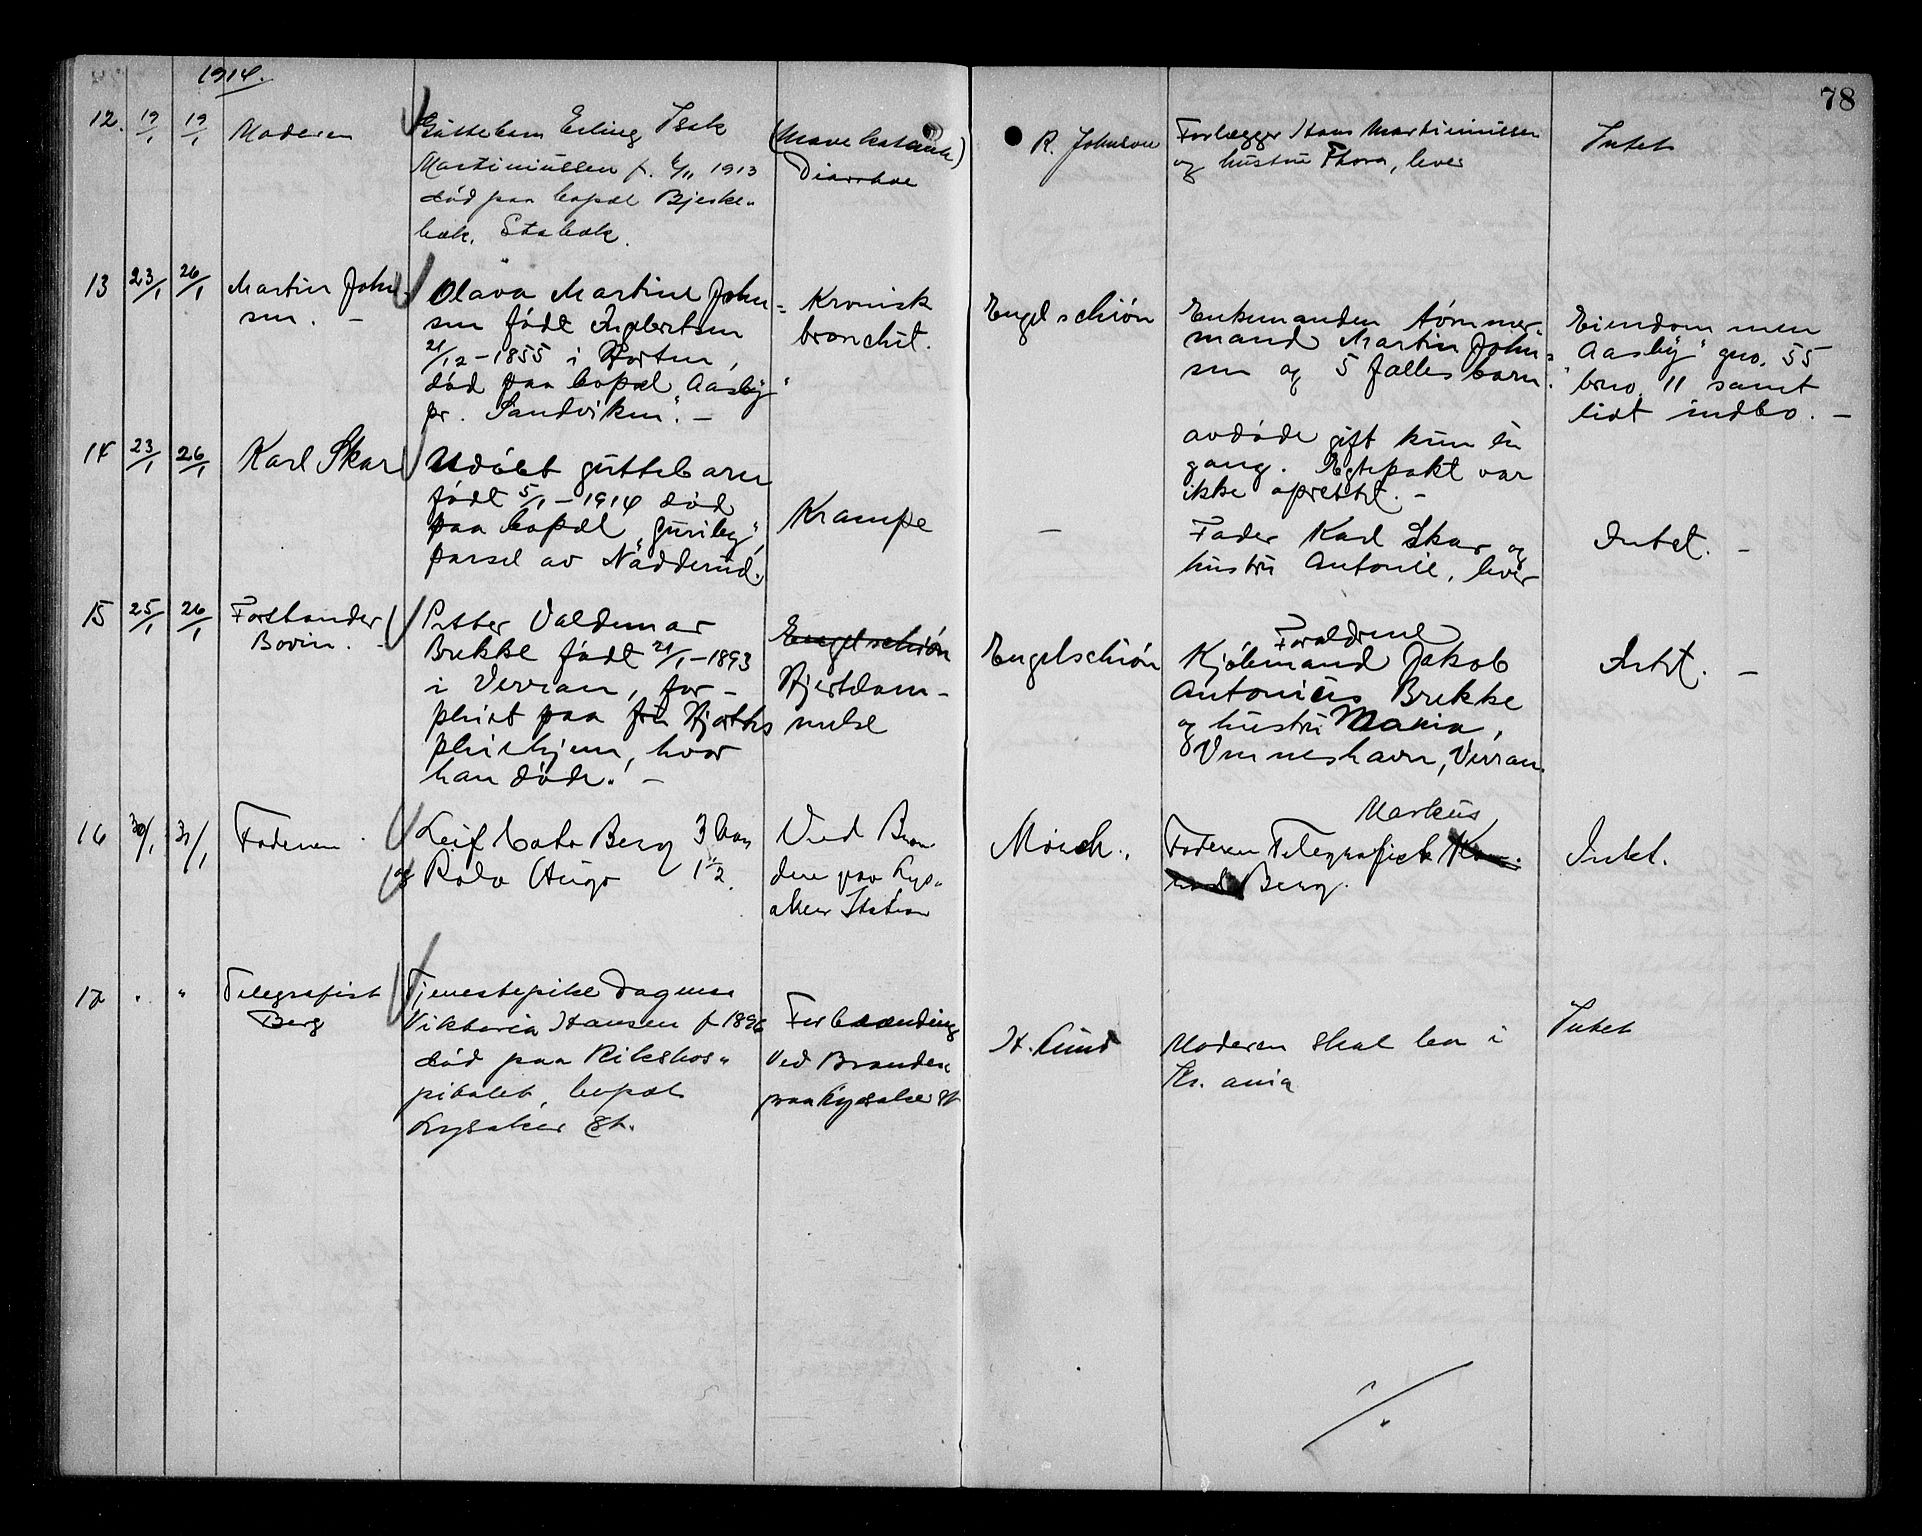 1914.
78
12. 19/1 19/1 Moderen
Guttebarn Erling Isak
Martiniussen f. 6/11 1913
død paa bopæl Bjerke-
bæk, Stabæk.
(Mavekatarrh)
Diarrhoe
R. Johnson
Forlægger Hans Martiniussen
og hustru Thora, lever
Intet
13 23/1 26/1 Martin John
sen. —
Olava Martine John-
sen født Ingebretsen
21/12 - 1855 i
død paa bopæl "Aasby"
pr. Sandviken. —
Kronisk
bronchit.
Engelschiøn
Enkemanden tømmer-
mand Martin John-
sen og 5 fælles barn.
avdøde gift kun én
gang. Egtepakt var
ikke oprettet. —
Eiendommen
"Aasby" gno. 55
bruo. 11 samt
lidt indbo. —
14 23/1 26/1 Karl Skar
Udøbt guttebarn
født 5/1 - 1914 død
paa bopæl "Guriby",
parsel av Nadderud.
Krampe
—
Fader Karl Skar og
hustru Antonie, lever
Intet. —
15 25/1 26/1 Forstander
Bovim. —
Petter Valdemar
Brekke født 21/1 - 1893
i Verran, for-
pleiet paa fru Hjorths
pleiehjem, hvor
han døde. —
Engelschiøn
Hjertelam-
melse
Engelschiøn
Forældrene
Kjøbmand Jakob
Antonius Brekke
og hustru Maria,
Verran.
Intet. —
16 30/1 31/1 Faderen
Leif Cato Berg 3 aar
og Rolv Hugo 1 1/2.
Ved Bran
den paa Lys-
aker Station
Mørch.
Markus
Faderen Telegrafist
Berg.
Intet.
17 " " Telegrafist
Berg
Tjenestepike Dagmar
Viktoria Hansen f 1896
død paa Rikshos-
pitalet, bopæl
Lysaker St.
Forbrænding
Ved Branden
paa Lysaker St
H. Lund
Moderen skal leve i
Kr.ania
Intet